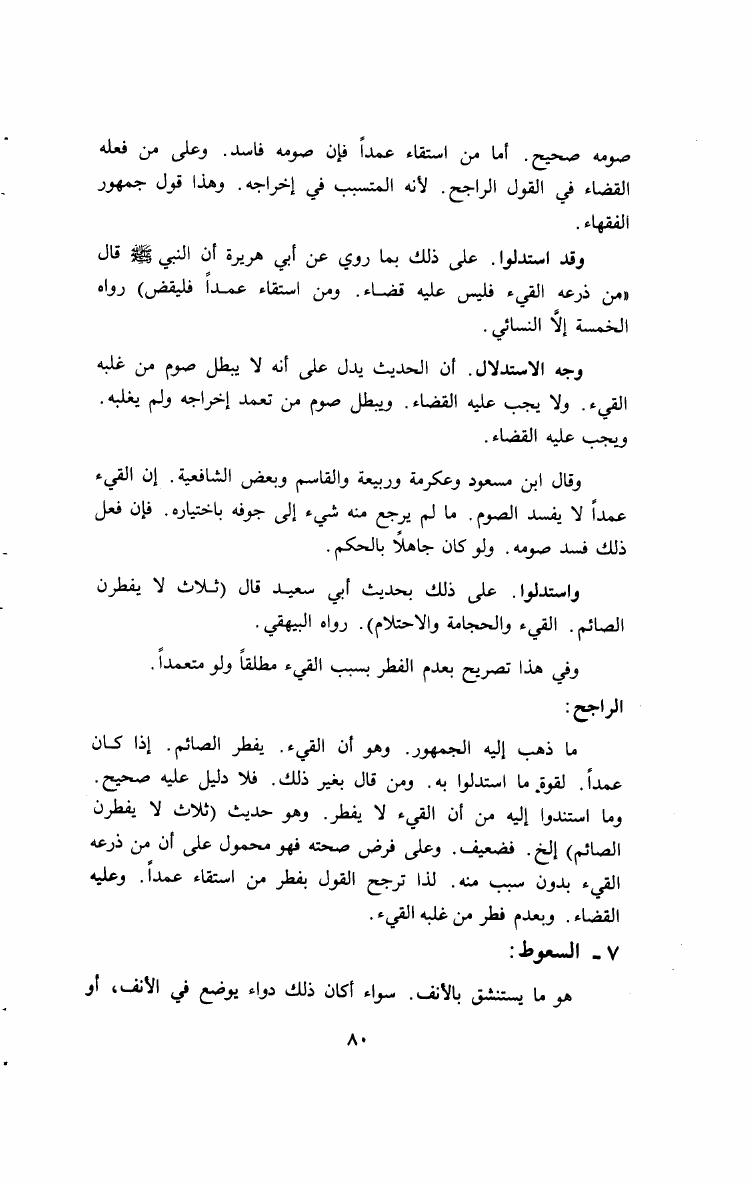 صومه صحيح. أما من استقاء عمداً فإن صومه فاسد. وعلى من فعله
القضاء في القول الراجح. لأنه المتسبب في إخراجه. وهذا قول جمهور
الفقهاء.
وقد استدلوا. على ذلك بما روي عن أبي هريرة أن النبي ﷺ قال
«من ذرعه القيء فليس عليه قضـاء. ومن استقاء عمـداً فليقض) رواه
الخمسة إلَّا النسائي.
وجه الاستدلال. أن الحديث يدل على أنه لا يبطل صوم من غلبه
القيء. ولا يجب عليه القضاء. ويبطل صوم من تعمد إخراجه ولم يغلبه.
ويجب عليه القضاء.
وقال ابن مسعود وعكرمة وربيعة والقاسم وبعض الشافعية. إن القيء
عمداً لا يفسد الصوم. ما لم يرجع منه شيء إلى جوفه باختياره. فإن فعل
ذلك فسد صومه. ولو كان جاهلًا بالحكم.
واستدلوا. على ذلك بحديث أبي سعيـد قال (ثـلاث لا يفطرن
الصائم. القيء والحجامة والاحتلام). رواه البيهقي.
وفي هذا تصريح بعدم الفطر بسبب القيء مطلقاً ولو متعمداً.
الراجح:
ما ذهب إليه الجمهور. وهو أن القيء. يفطر الصائم. إذا كـان
عمداً. لقوة ما استدلوا به. ومن قال بغير ذلك. فلا دليل عليه صحيح.
وما استندوا إليه من أن القيء لا يفطر. وهو حديث (ثلاث لا يفطرن
الصائم) إلخ. فضعيف. وعلى فرض صحته فهو محمول على أن من ذرعه
القيء بدون سبب منه. لذا ترجح القول بفطر من استقاء عمداً. وعليه
القضاء. وبعدم فطر من غلبه القيء.
٧ ـ السعوط:
هو ما يستنشق بالأنف. سواء أكان ذلك دواء يوضع في الأنف، أو
٨٠